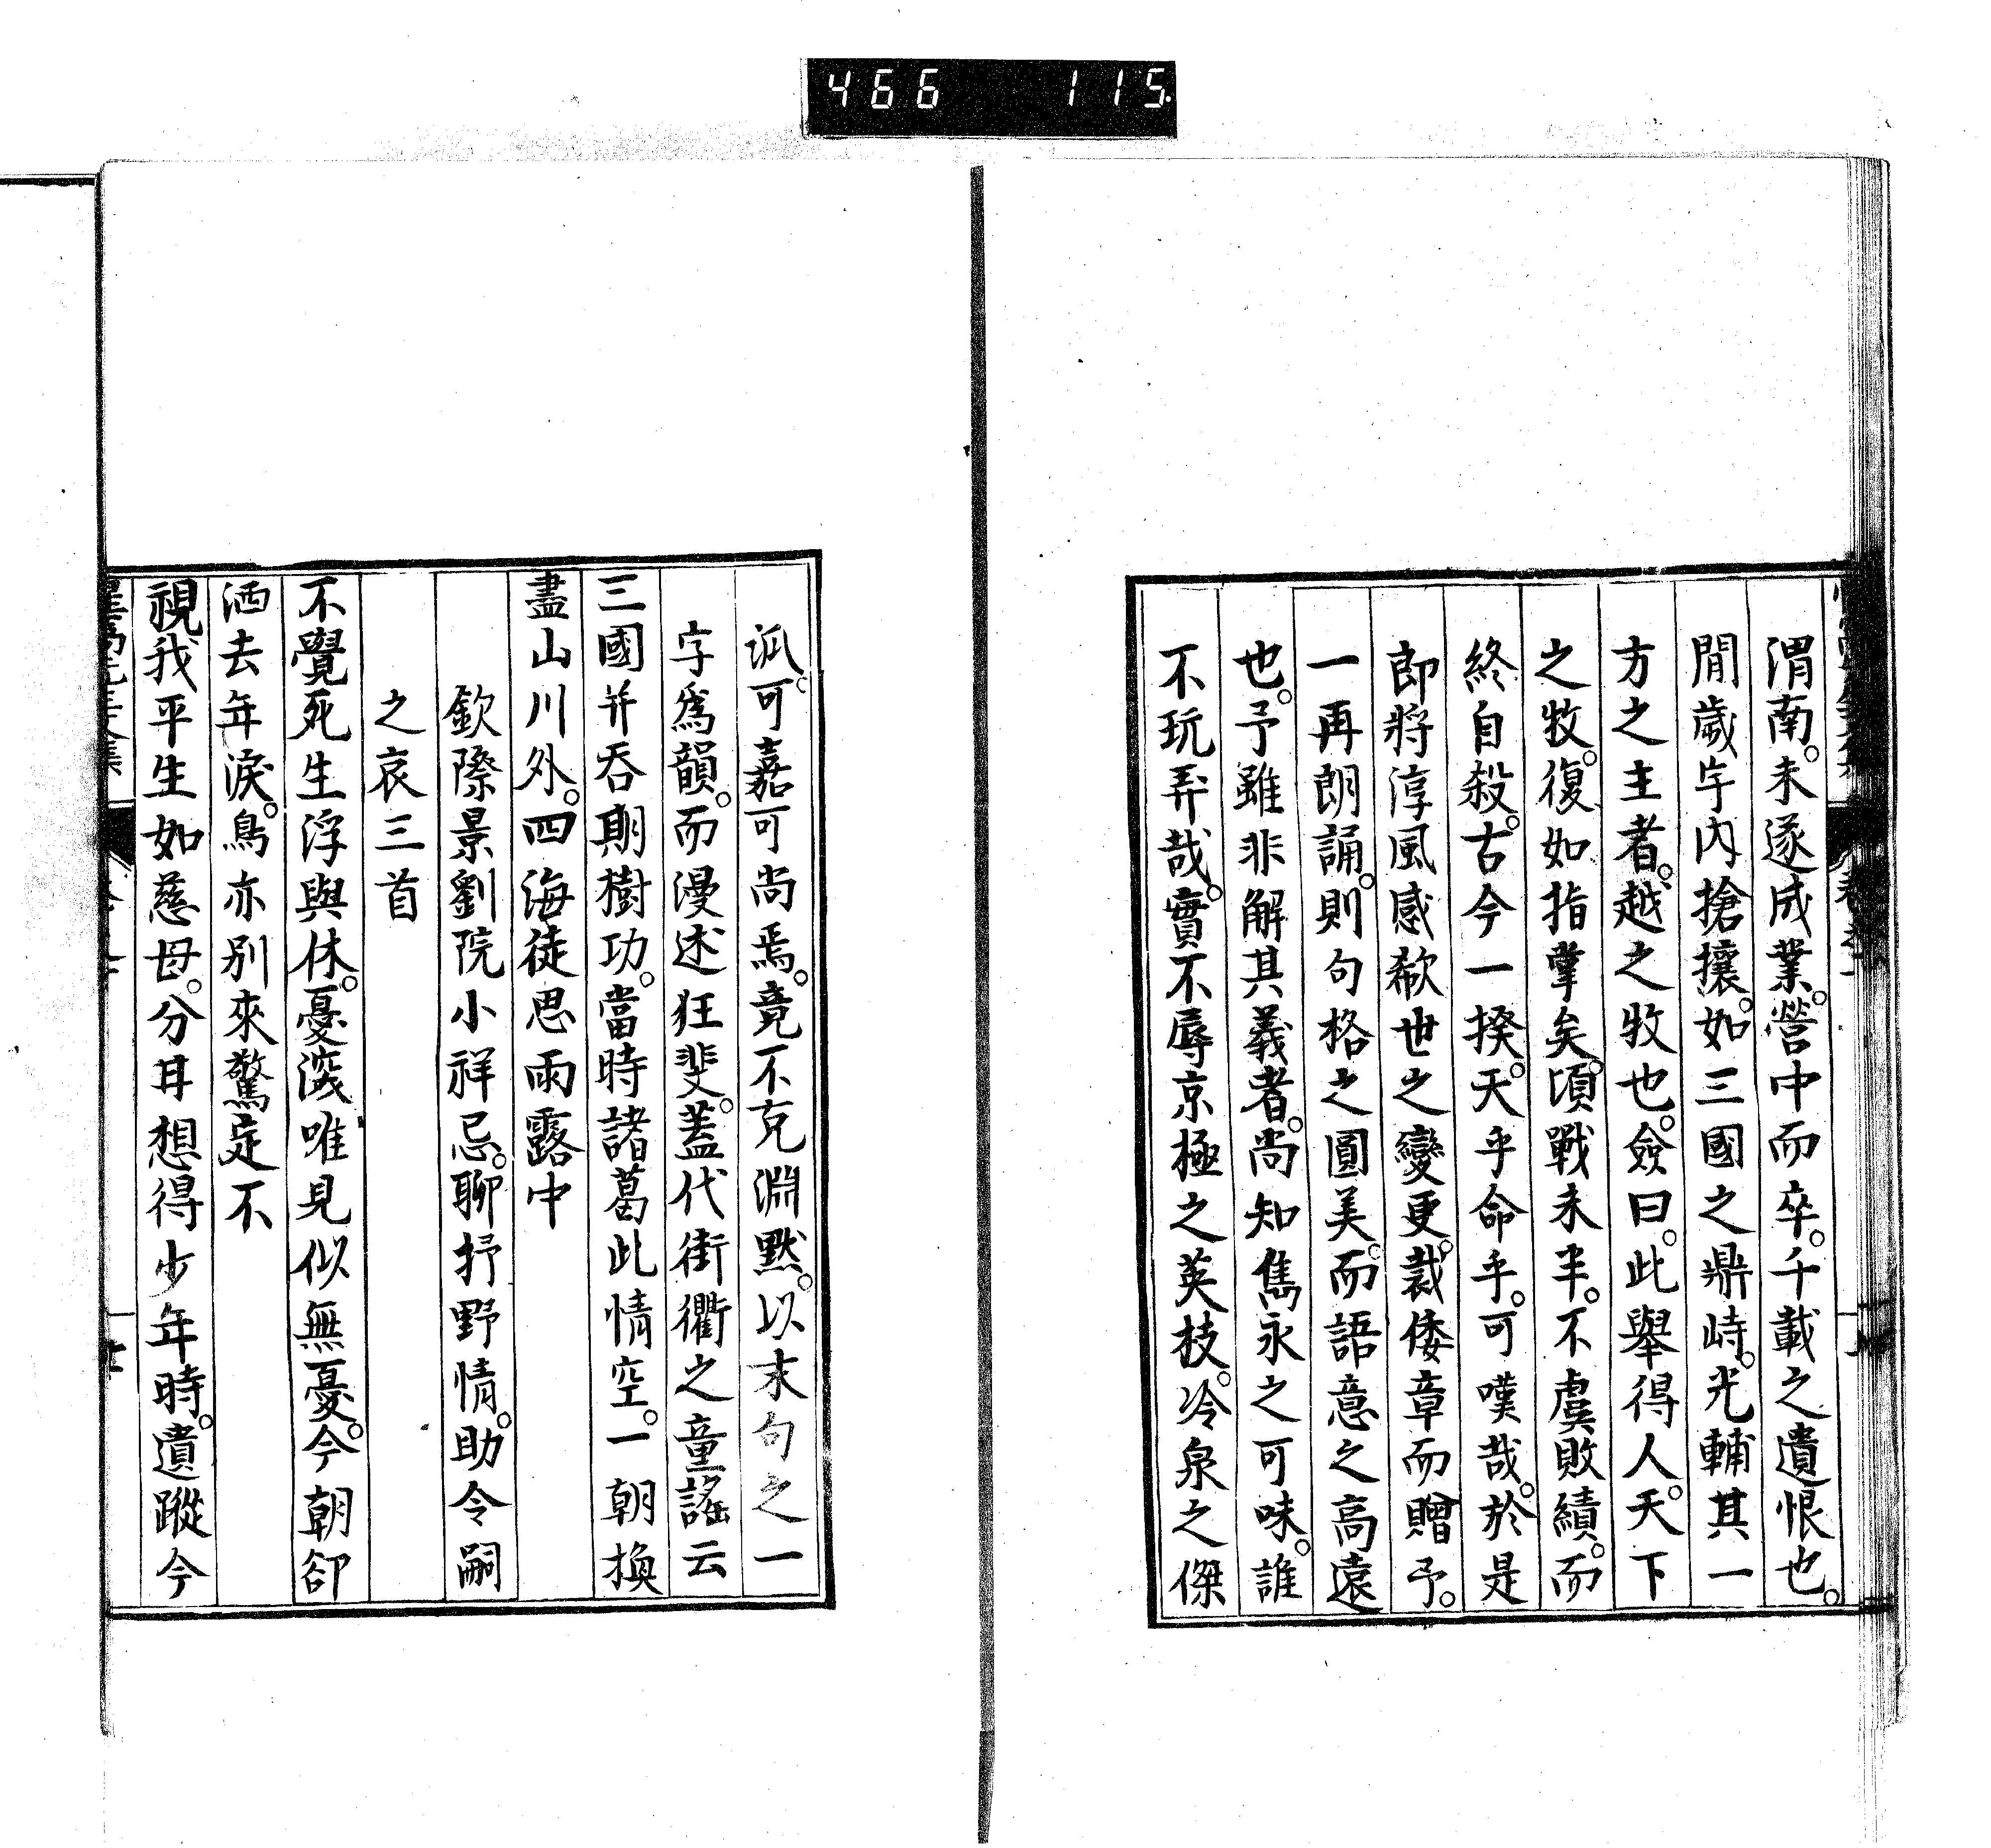 466 115
渭南。未遂成業。營中而卒。千載之遺恨也。
間歲宇內搶攘。如三國之鼎峙。光輔其一
方之主者。越之牧也。僉曰。此舉得人。天下
之牧。復如指掌矣。頃戰未半。不虞敗績。而
終自殺。古今一揆。天乎命乎。可嘆哉。於是
郎將淳風感欷世之變更。裁倭章而贈予。
一再朗誦。則句格之圓美。而語意之高遠
也。予雖非解其義者。尚知雋永之可味。誰
不玩弄哉。實不辱京極之英枝。冷泉之傑
派。可嘉可尚焉。竟不克淵默。以末句之一
字為韻。而漫述狂斐。蓋代街衢之童謠云
三國并吞期樹功。當時諸葛此情空。一朝換
盡山川外。四海徒思雨露中
欽際景劉院小祥忌。聊抒野情。助令嗣
之哀三首
不覺死生浮與休。憂深唯見似無憂。今朝卻
洒去年淚。鳥亦別來驚定不
視我平生如慈母。分甘想得少年時。遺蹤今